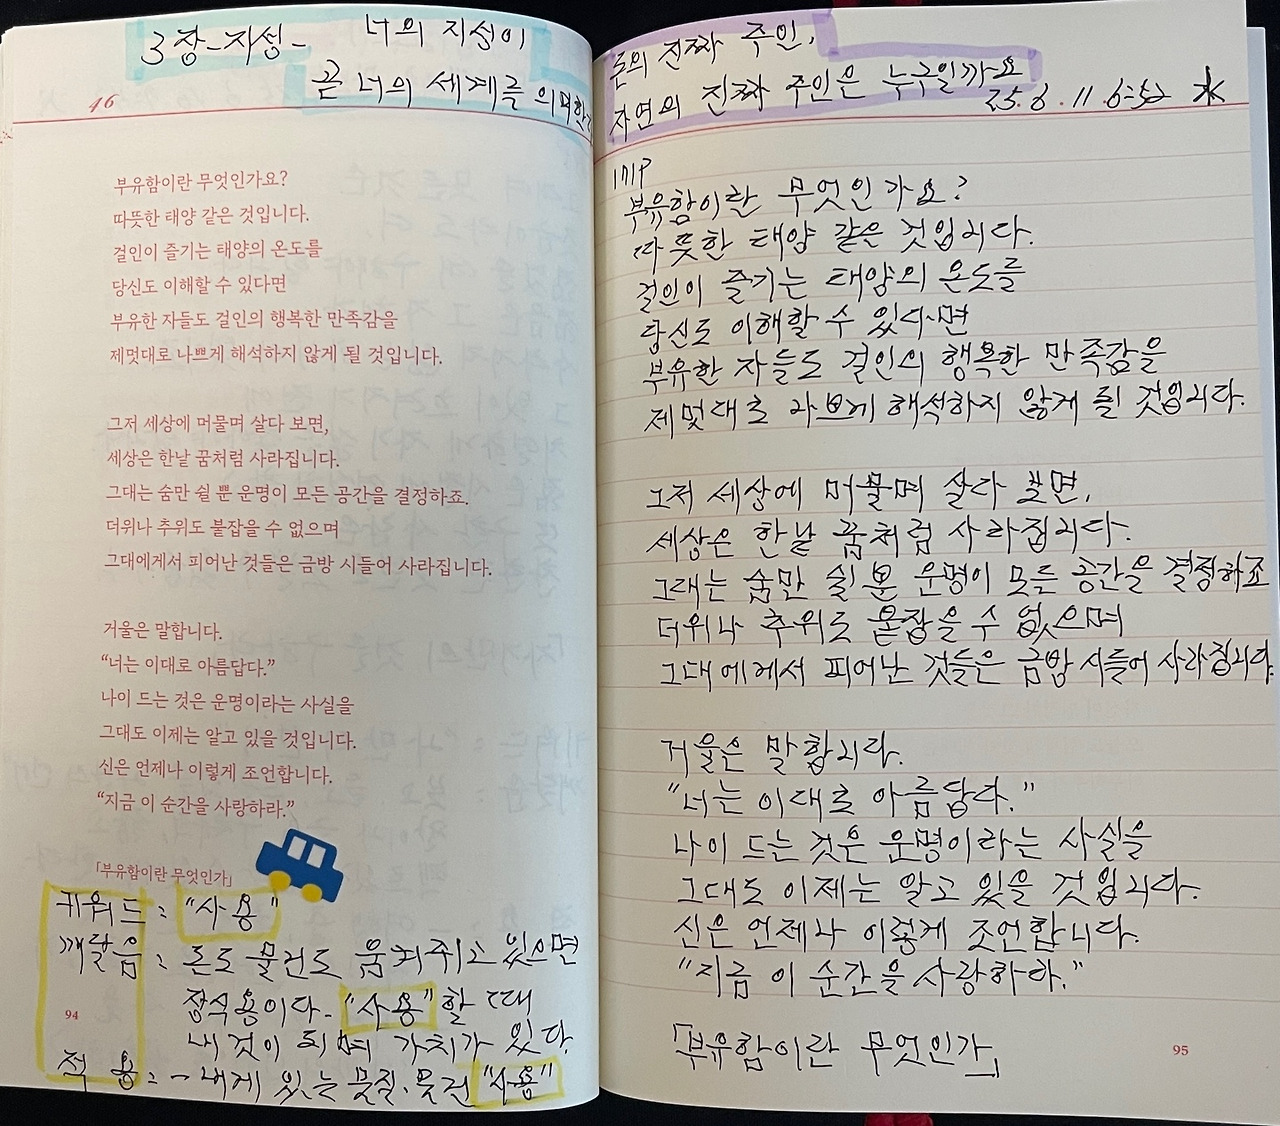 3장-지성- 너의 지성이
곧 너의 세계를 의미한다
46
부유함이란 무엇인가요?
따뜻한 태양 같은 것입니다.
걸인이 즐기는 태양의 온도를
당신도 이해할 수 있다면
부유한 자들도 걸인의 행복한 만족감을
제멋대로 나쁘게 해석하지 않게 될 것입니다.
그저 세상에 머물며 살다 보면,
세상은 한낱 꿈처럼 사라집니다.
그대는 숨만 쉴 뿐 운명이 모든 공간을 결정하죠.
더위나 추위도 붙잡을 수 없으며
그대에게서 피어난 것들은 금방 시들어 사라집니다.
거울은 말합니다.
“너는 이대로 아름답다.”
나이 드는 것은 운명이라는 사실을
그대도 이제는 알고 있을 것입니다.
신은 언제나 이렇게 조언합니다.
“지금 이 순간을 사랑하라.”
「부유함이란 무엇인가」
키워드 : "사용"
깨달음 : 돈도 물건도 움켜쥐고 있으면
장식용이다. "사용"할 때
내것이 되며 가치가 있다.
94
적용 : - 내게 있는 물질·물건 "사용"
돈의 진짜 주인,
자연의 진짜 주인은 누구일까요
25. 6. 11. 6:52 水
171P
부유함이란 무엇인가요?
따뜻한 태양 같은 것입니다.
걸인이 즐기는 태양의 온도를
당신도 이해할 수 있다면
부유한 자들도 걸인의 행복한 만족감을
제멋대로 나쁘게 해석하지 않게 될 것입니다.
그저 세상에 머물며 살다 보면,
세상은 한낱 꿈처럼 사라집니다.
그대는 숨만 쉴 뿐 운명이 모든 공간을 결정하죠
더위나 추위도 붙잡을 수 없으며
그대에게서 피어난 것들은 금방 시들어 사라집니다.
거울은 말합니다.
"너는 이대로 아름답다."
나이 드는 것은 운명이라는 사실을
그대도 이제는 알고 있을 것입니다.
신은 언제나 이렇게 조언합니다.
"지금 이 순간을 사랑하라."
「부유함이란 무엇인가」
95